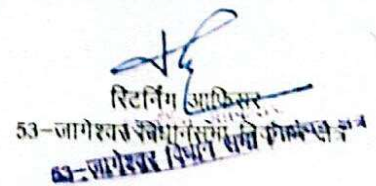 रिटर्निंग आफिसर
53-जागेश्वर विधानसभा निर्वाचन क्षेत्र
53-जागेश्वर विधान सभा